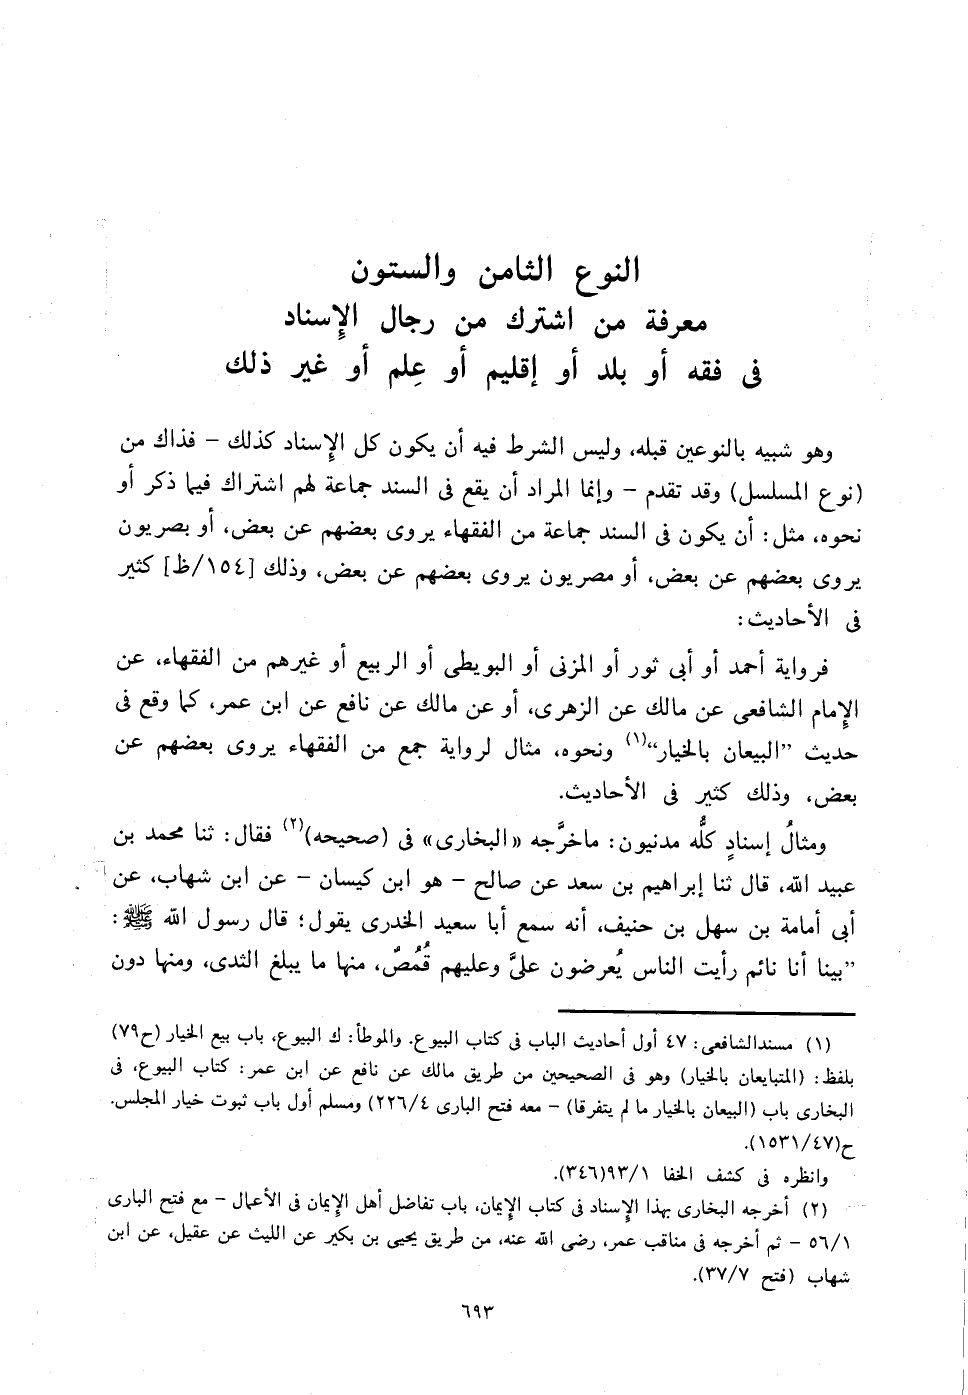 النوع الثامن والستون
معرفة من اشترك من رجال الإسناد
فى فقه أو بلد أو إقليم أو عِلم أو غير ذلك
وهو شبيه بالنوعين قبله، وليس الشرط فيه أن يكون كل الإسناد كذلك – فذاك من
(نوع المسلسل) وقد تقدم – وإنما المراد أن يقع فى السند جماعة لهم اشتراك فيما ذكر أو
نحوه، مثل: أن يكون فى السند جماعة من الفقهاء يروى بعضهم عن بعض، أو بصريون
يروى بعضهم عن بعض، أو مصريون يروى بعضهم عن بعض، وذلك [١٥٤/ظ] كثير
فى الأحاديث:
فرواية أحمد أو أبى ثور أو المزنى أو البويطى أو الربيع أو غيرهم من الفقهاء، عن
الإمام الشافعى عن مالك عن الزهرى، أو عن مالك عن نافع عن ابن عمر، كما وقع فى
حديث ”البيعان بالخيار“(١) ونحوه، مثال لرواية جمع من الفقهاء يروى بعضهم عن
بعض، وذلك كثير فى الأحاديث.
ومثالُ إسنادٍ كلُّه مدنيون: ماخرَّجه «البخارى» فى (صحيحه)(٢) فقال: ثنا محمد بن
عبيد الله، قال ثنا إبراهيم بن سعد عن صالح – هو ابن كيسان – عن ابن شهاب، عن
أبى أمامة بن سهل بن حنيف، أنه سمع أبا سعيد الخدرى يقول؛ قال رسول الله ﷺ:
”بينا أنا نائم رأيت الناس يُعرضون علىَّ وعليهم قُمُصٌ، منها ما يبلغ الثدى، ومنها دون
(١) مسندالشافعى: ٤٧ أول أحاديث الباب فى كتاب البيوع. والموطأ: ك البيوع، باب بيع الخيار (ح٧٩)
بلفظ: (المتبايعان بالخيار) وهو فى الصحيحين من طريق مالك عن نافع عن ابن عمر: كتاب البيوع، فى
البخارى باب (البيعان بالخيار ما لم يتفرقا) – معه فتح البارى ٢٢٦/٤) ومسلم أول باب ثبوت خيار المجلس.
ح(١٥٣١/٤٧).
وانظره فى كشف الخفا ٩٣/١(٣٤٦).
(٢) أخرجه البخارى بهذا الإسناد فى كتاب الإيمان، باب تفاضل أهل الإيمان فى الأعمال – مع فتح البارى
٥٦/١ – ثم أخرجه فى مناقب عمر، رضى الله عنه، من طريق يحيى بن بكير عن الليث عن عقيل، عن ابن
شهاب (فتح ٣٧/٧).
٦٩٣